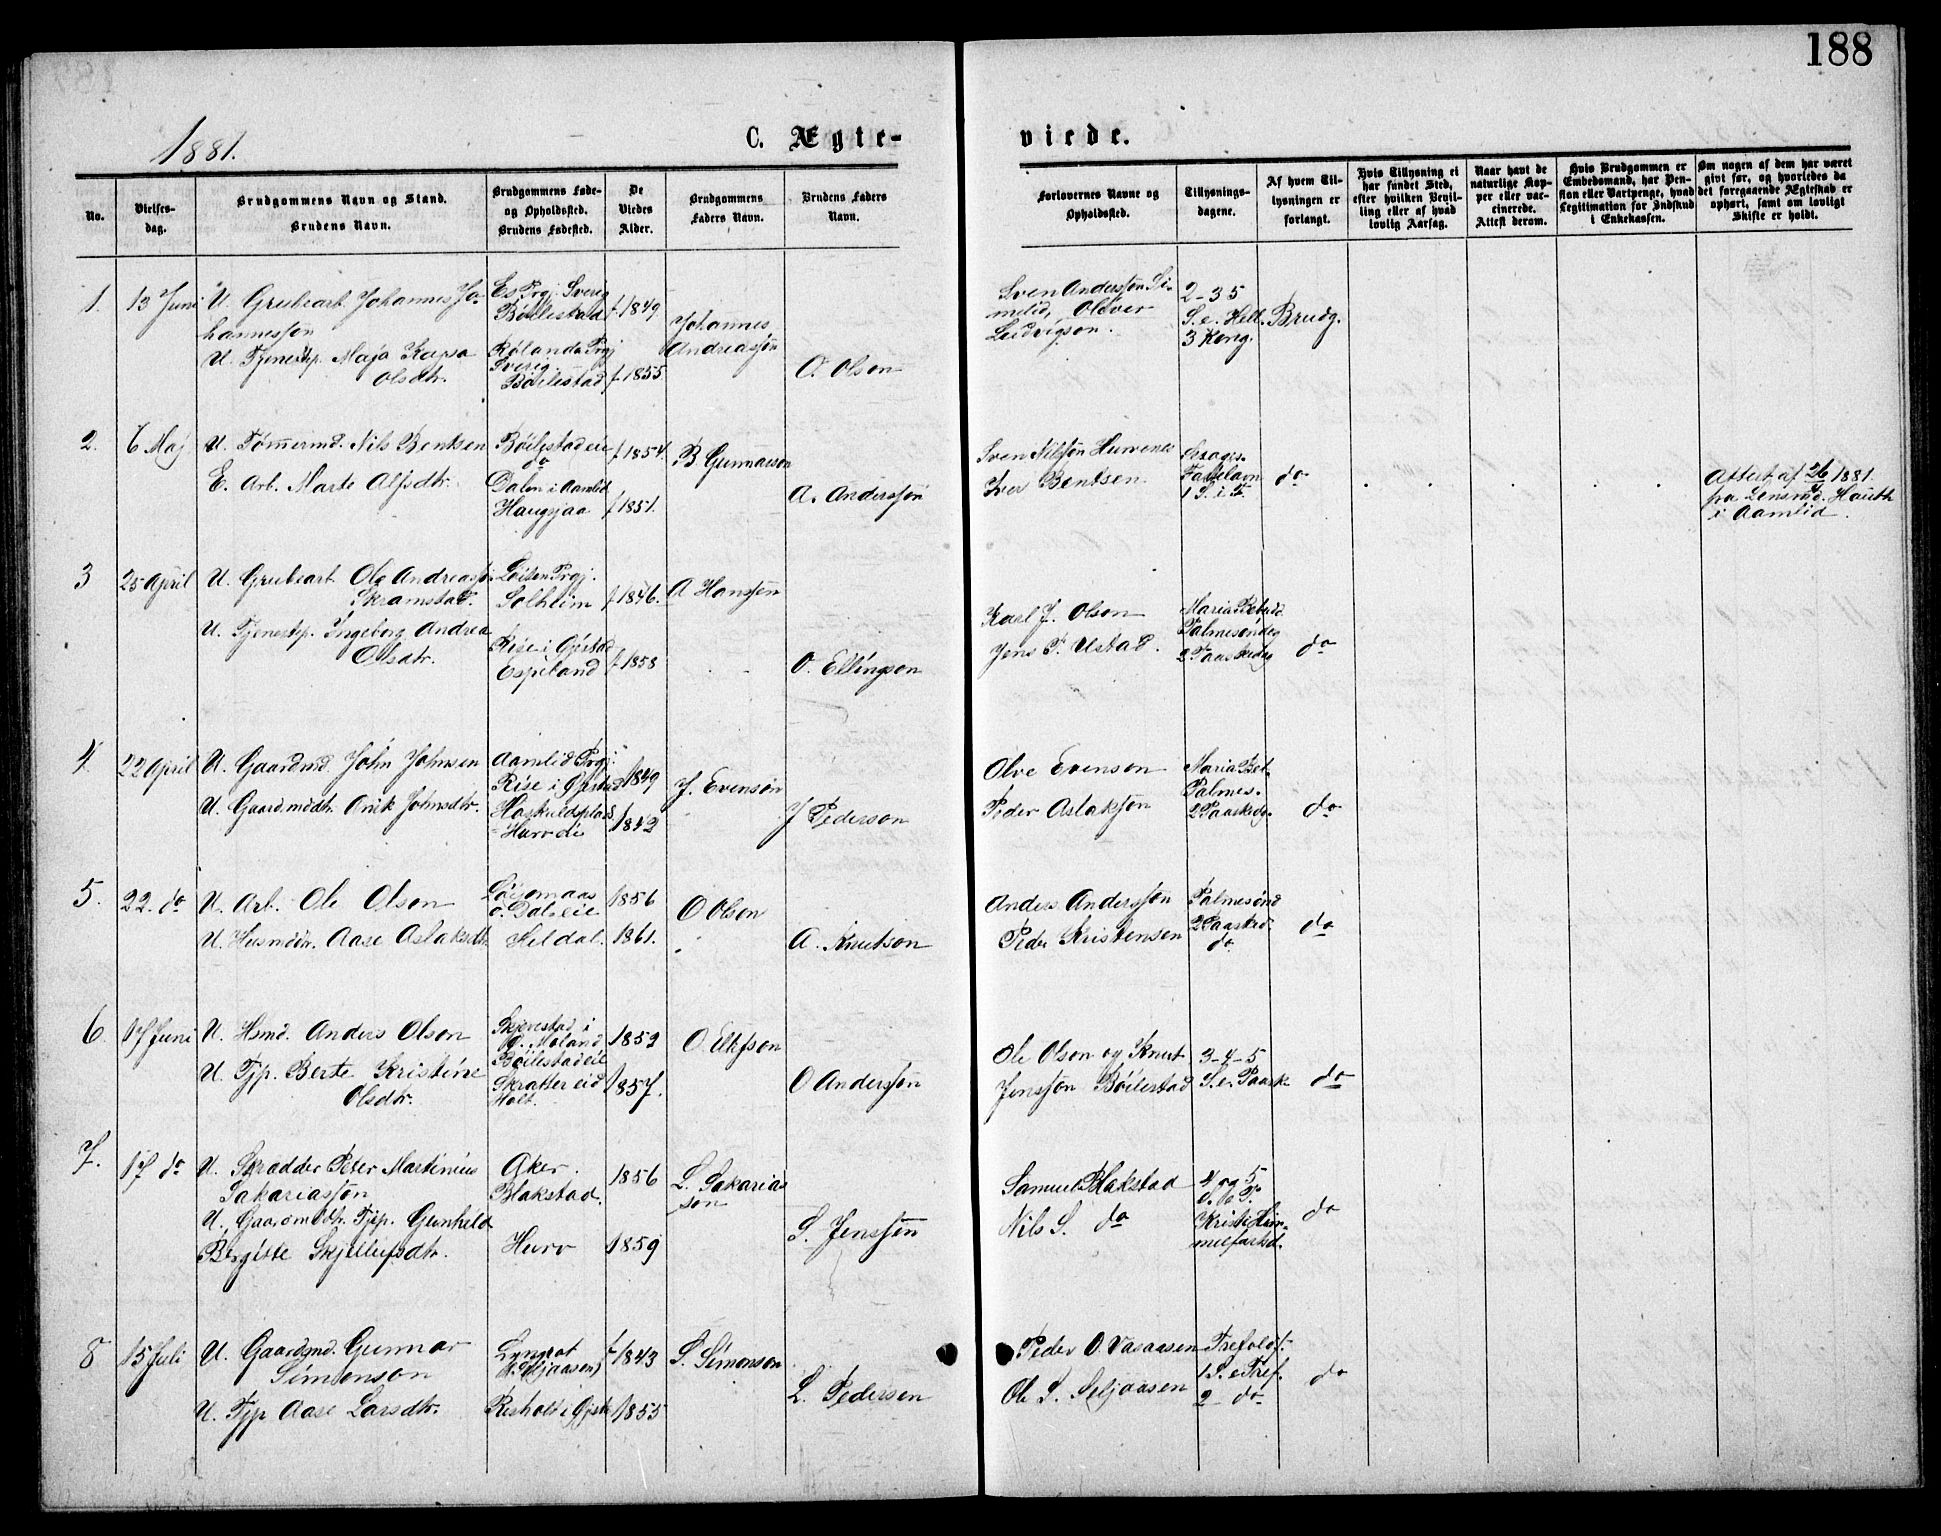 188
1881.
C. Ægte-
viede.
No.
Vielses-
dag.
Brudgommens Navn og Stand.
Brudens Navn.
Brudgommens Føde-
og Opholdssted.
Brudens Fødested.
De
Viedes
Alder.
Brudgommens
Faders Navn.
Brudens Faders
Navn.
Forlovernes Navne og
Opholdssted.
Tillysnings-
dagene.
Af hvem Til-
lysningen er
forlangt.
Hvis Tillysning ei
har fundet Sted,
efter hvilken Bevil-
ling eller af hvad
lovlig Aarsag.
Naar havt de
naturlige Kop-
per eller vac-
cinerede.
Attest derom.
Hvis Brudgommen er
Embedsmand, har Pen-
sion eller Vartpenge, hvad
Legitimation for Indskud
i Enkekassen.
Om nogen af dem har været
gift før, og hvorledes da
det foregaaende Ægteskab er
ophørt, samt om lovligt
Skifte er holdt.
1.
13 Juni
U. Grubearb. Johannes Jo-
hannesson
U. Tjenestp. Maja Kajsa
Olsdtr.
Es Prgj. Sverig
Bøilestad
Rølanda Prgj
Sverig.
Bøilestad
f. 1849
f. 1855
Johannes
Andreasson
O. Olson
Sven Andersson Li-
melid, Oliver
Ludvigson.
2-35
S. e. Hell.
3 Kong.
Brudg.
2.
6 Maj
U. Tømermd. Nils Bentsen
E. Arb. Marte Alfsdtr.
Bøilestadeie
do
Dalen i Aamlid
Haugsjaa
f. 1854.
f. 1851.
B. Gunnarson
A. Anderssøn
Sven Nilsson Hurvenes
Iver Bentsen
Fastelavn
1 S. i F.
do
Attest af 26/4 1881
fra Lensmd. Hauth
i Aamlid.
3
25 April
U. Grubearb. Ole Andreass.
Skramstad.
U. Tjenestp. Ingeborg Andrea
Olsdtr.
Løiten Prgj.
Solheim
Rise i Gjerstad
Espeland
f. 1846.
f. 1858
A Hanssøn
O. Ellingson
Karl J. Olson
Jens P. Ustad.
Maria Bebud.
Palmesøndg
2 Paaskedg
do
4.
22 April
U. Gaardmd. John Johnsen
U. Gaardmdtr. Anik Johnsdtr.
Aamlid Prgj.
Rise i Gjerstad
Haskuldsplads
Hurvdie
1849
1842
J. Evenson
J Pederson
Olve Evenson
Peder Aslaksøn
Maria Bet.
Palmes.
2 Paaskedg.
do
5.
22. do
U. Arb. Ole Olson
U. Husmdtr. Aase Aslaksdtr.
Løismaas
o. Dalseie
Seldal.
1856
1861.
O Olson
A. Knutson
Anders Anderssøn
Peder Kristensen
Palmesønd
2 Paaskd.
do
do
6.
17 Juni
U. Hsmd. Anders Olson
U. Tjp. Berte Kristine
Olsdtr.
Skjevestad i
Ø. Moland
Bøilestadeie
Skratter eid
Holt.
1852
1857.
O. Elefson
O Anderssøn
Ole Olson og Knut
Jenssøn Bøilestad
3-4-5
S. e. Paask.
do
7.
17 do
U. Skrædder Peter Martinius
Sakariassøn
U. Gaardmdtr. Tjp. Gunhild
Birgitte Skjellufsdtr.
Aker.
Blakstad.
Hurv
1856
1859
L. Sakarias
søn
S. Jenssøn
Samuel Blakstad
Nils S. do
4 og 5
S. e. P.
Kristi Him-
melfartsd.
do
8
15 Juli
U. Gaardmd. Gunnar
Simonson
U. Tjp Aase Larsdtr.
Lyngrot
(n. Seljaasen)
Risholt i Gjerst.
f. 1843
1855
S. Simonson
L. Pedersen
Peder O. Vasaasen
Ole S. Seljaasen
Trefoldf.
1 S. e. Tref.
2 do
do